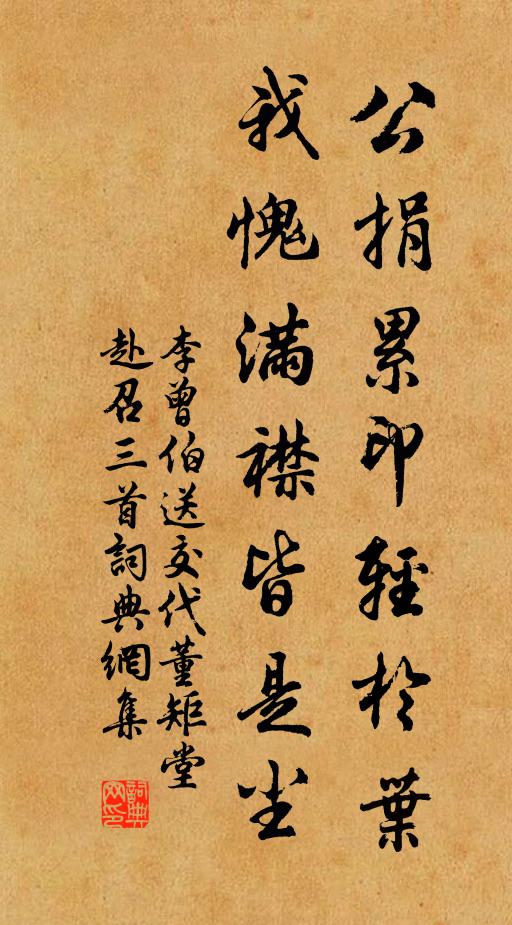 公捐累印輕於葉
我愧滿襟皆是尘
李曾伯送交代董矩堂
赴召三首詞典網集
詞典
网印